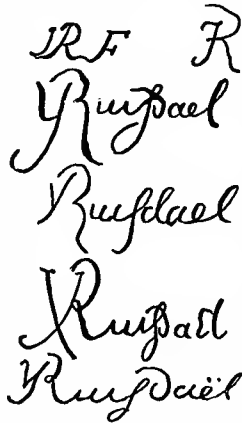 JR F JR
JRuisdael
Ruisdael
JRuisdael
JRuisdaël